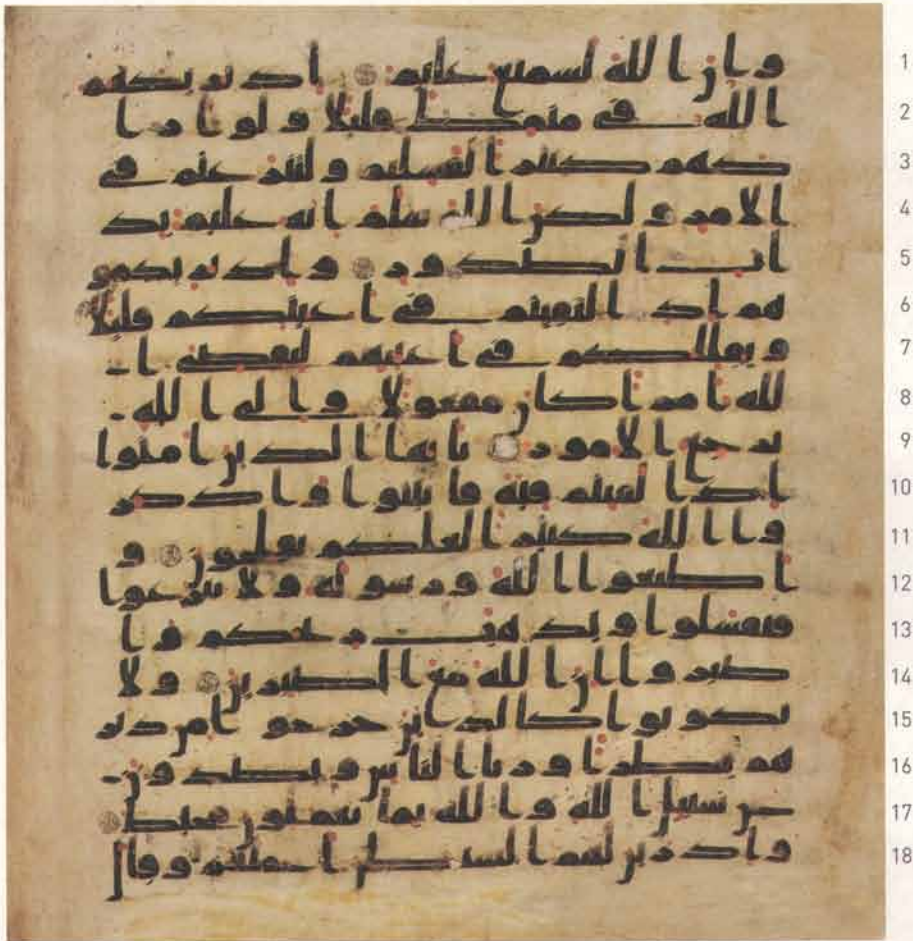 وان الله لسميع عليم اذ يريكهم 1
الله في منمك قليلا ولو ارا 2
كهم كثيرا لفشلتم ولتنزعتم في 3
الامر ولكن الله سلم انه عليم بذ 4
ات الصدور واذ يريكمو 5
هم اذ التقيتم في اعينكم قليلا 6
ويقللكم في اعينهم ليقضي ا 7
لله امرا كان مفعولا والى الله 8
ترجع الامور يايها الذين امنوا 9
اذا لقيتم فئة فاثبتوا واذكر 10
وا الله كثيرا لعلكم تفلحون و 11
اطيعوا الله ورسوله ولا تنزعوا 12
فتفشلوا وتذهب ريحكم وا 13
صبروا ان الله مع الصبرين ولا 14
تكونوا كالذين خرجوا من دير 15
هم بطرا وريا الناس ويصدون 16
عن سبيل الله والله بما يعملون محيط 17
واذ زين لهم الشيطن اعملهم وقال 18